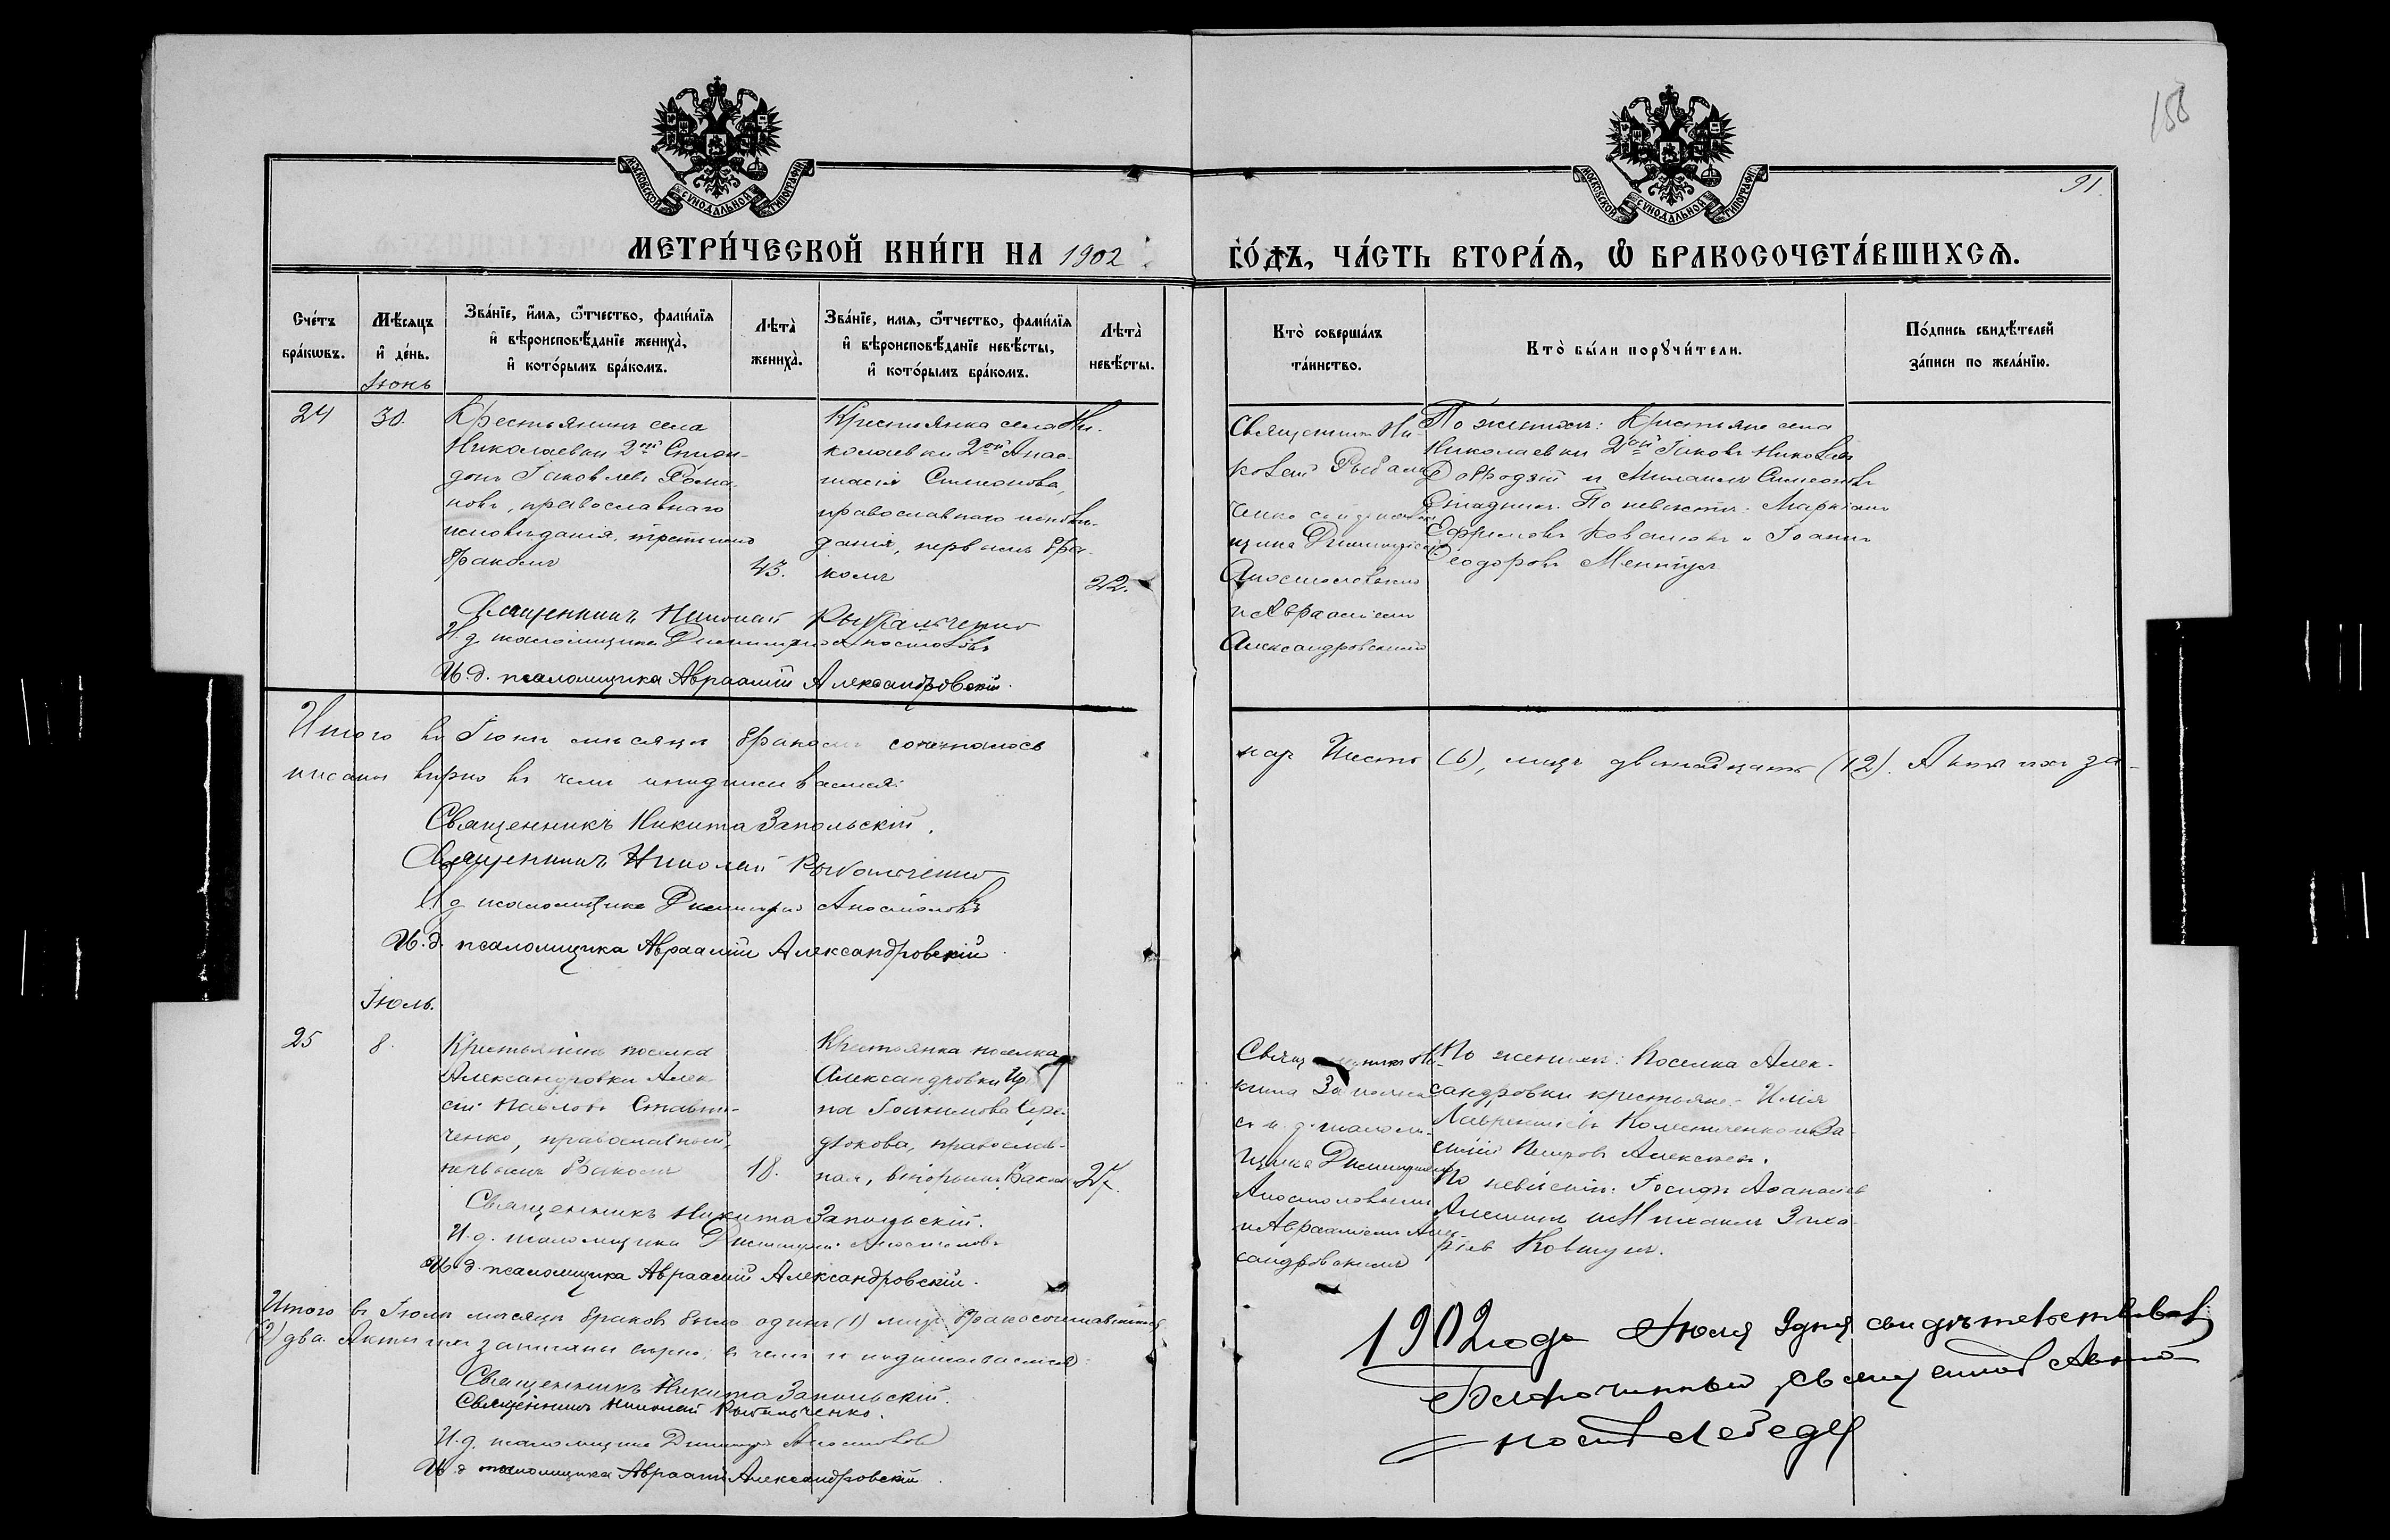 158
91
МОСКОВСКОЙ СѴНОДАЛЬНОЙ ТИПОГРАФІИ
МОСКОВСКОЙ СѴНОДАЛЬНОЙ ТИПОГРАФІИ
МЕТРИ́ЧЕСКОЙ КНИ́ГИ НА 1902
ГО́ДЪ, ЧА́СТЬ ВТОРА́Ѧ, Ѿ БРАКОСОЧЕТА́ВШИХСѦ.
Сче́тъ
бра́кѡвъ.
Мѣ́сяцъ
и҆ де́нь.
Іюнь
Зва́нїе, и҆́мя, ѻ҆́тчество, фами́лїя
и҆ вѣроисповѣ́данїе жениха̀,
и҆ кото́рымъ бра́комъ.
Лѣта̀
жениха̀.
Зва́нїе, имя, ѻ҆́тчество, фами́лїя
и҆ вѣроисповѣ́данїе невѣ́сты,
и҆ кото́рымъ бра́комъ.
Лѣта̀
невѣ́сты.
Кто̀ соверша́лъ
та́инство.
Кто̀ бы́ли порꙋчи́тели.
По́дпись свидѣ́телей
за́писи по жела́нїю.
24
30.
Крестьянинъ села
Николаевки 2ой Спири-
донъ Іаковлевъ Рома-
новъ, православнаго
исповѣданія, третьимъ
бракомъ
43.
Крестьянка села Ни-
колаевки 2ой Анас-
тасія Симеонова,
православнаго исповѣ-
данія, первымъ бра-
комъ
22.
Священникъ Ни-
колай Рыбаль
ченко
щика Димитріемъ
Апостоловымъ
и Авраамiемъ
Александровскимъ
По женихѣ: Крестьяне села
Николаевки 2ой Іаковъ Николаевъ
и Михаилъ Симеоновъ
По невѣстѣ: Маркіанъ
Ефремовъ и Іоаннъ
Ѳеодоровъ
Священникъ Николай Рыбальченко
И. д. псаломщика Димитрій Апостоловъ
И. д. псаломщика Авраамій Александровскій.
Итого въ Іюнѣ мѣсяцѣ бракомъ сочеталось
паръ Шесть (6), лицъ двѣнадцать (12). Акты ихъ за-
писаны вѣрно въ чемъ и подписываемся:
Священникъ Никита Запольскій.
Священникъ Николай Рыбальченко
И. д. псаломщика Димитрій Апостоловъ
И. д. псаломщика Авраамій Александровскій.
Іюль.
25
8.
Крестьянинъ поселка
Александровки Алек-
сѣй Павловъ Ставни-
ченко, православный,
первымъ бракомъ
18.
Крестьянка поселка
Александровки Ир
на Іоакимова Сер
дюкова, православ-
ная, вторымъ бракомъ
27.
Священникъ Ни-
кита Запольск
с и. д. псалом-
щика Димитріемъ
Апостоловымъ
и Авраамiемъ Алек-
сандровскимъ
По женихѣ: Поселка Алек-
сандровки крестьяне: Илія
Лаврентіевъ Колесниченко и Ва-
силій Петровъ Алексѣен.
По невѣстѣ: Іосифъ Аѳанасіевъ
и Михаилъ Заха-
ріевъ Ковтунъ.
Священникъ Никита Запольскій.
И. д. псаломщика Димитрій Апостоловъ
И. д. псаломщика Авраамій Александровскій.
Итого въ Іюлѣ мѣсяцѣ браковъ было одинъ (1) лицъ бракосочетавшихся
(2) два. Акты сіи записаны вѣрно, въ чемъ и подписываемся:
Священникъ Никита Запольскій.
Священникъ Николай Рыбальченко.
И. д. псаломщика Димитрій Апостоловъ
И. д. псаломщика Авраамій Александровскій.
1902 года Іюля 9 дня свидѣтельствовалъ
Благочинный священникъ
Лебедев